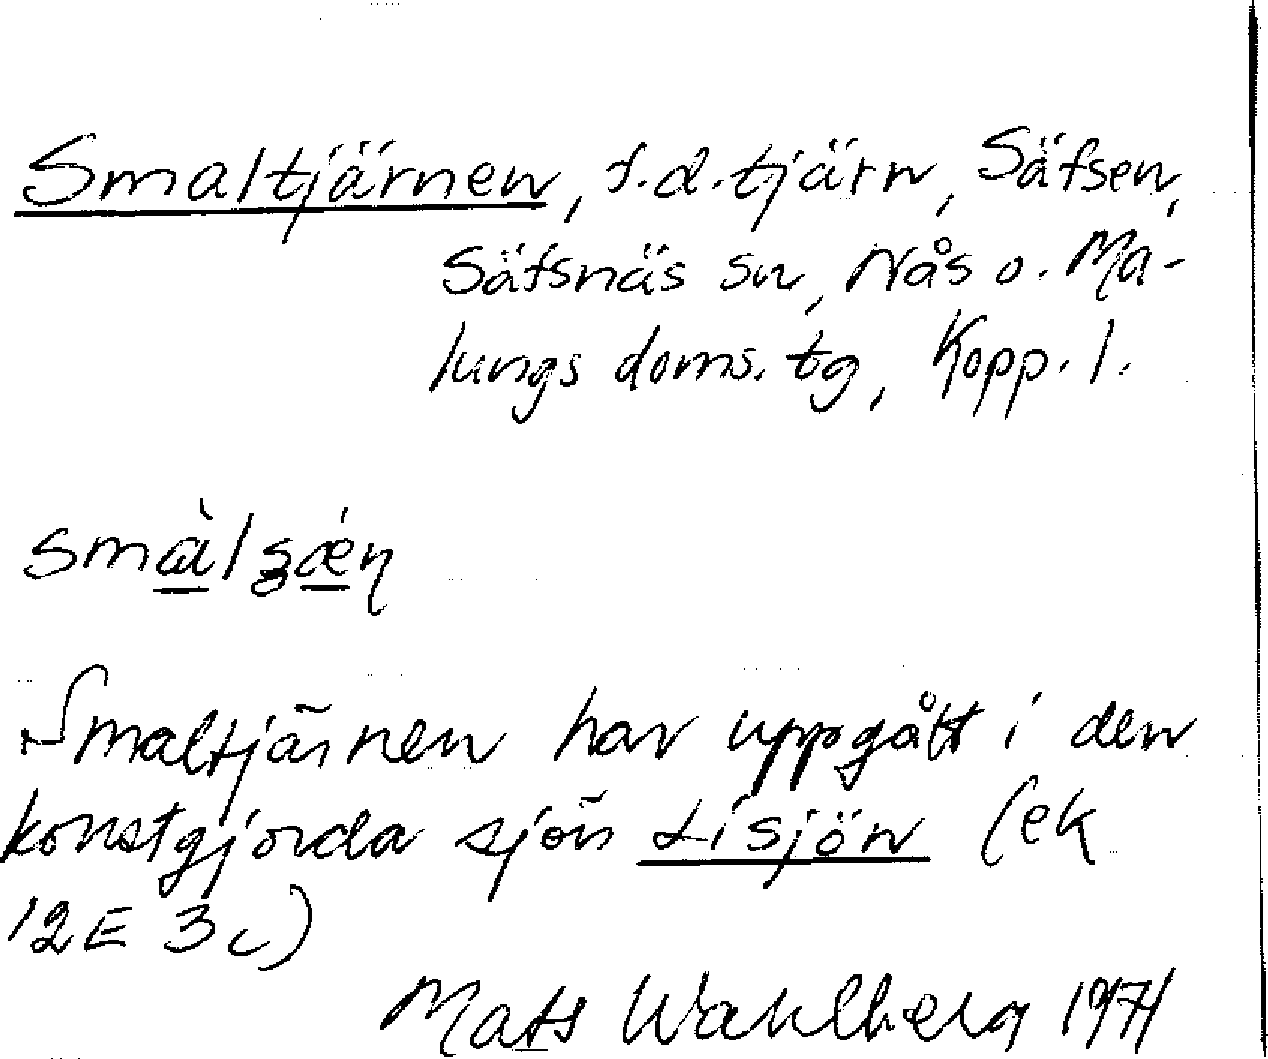 Smaltjärnen, f.d. tjärn, Säfsen,
Säfsnäs sn, Nås o. Ma-
lungs doms. tg, Kopp. l.
Smaltjärnen har uppgått i den
konstgjorda sjön Lisjön (ek
12E 3c)
Mats Wahlberg 1971